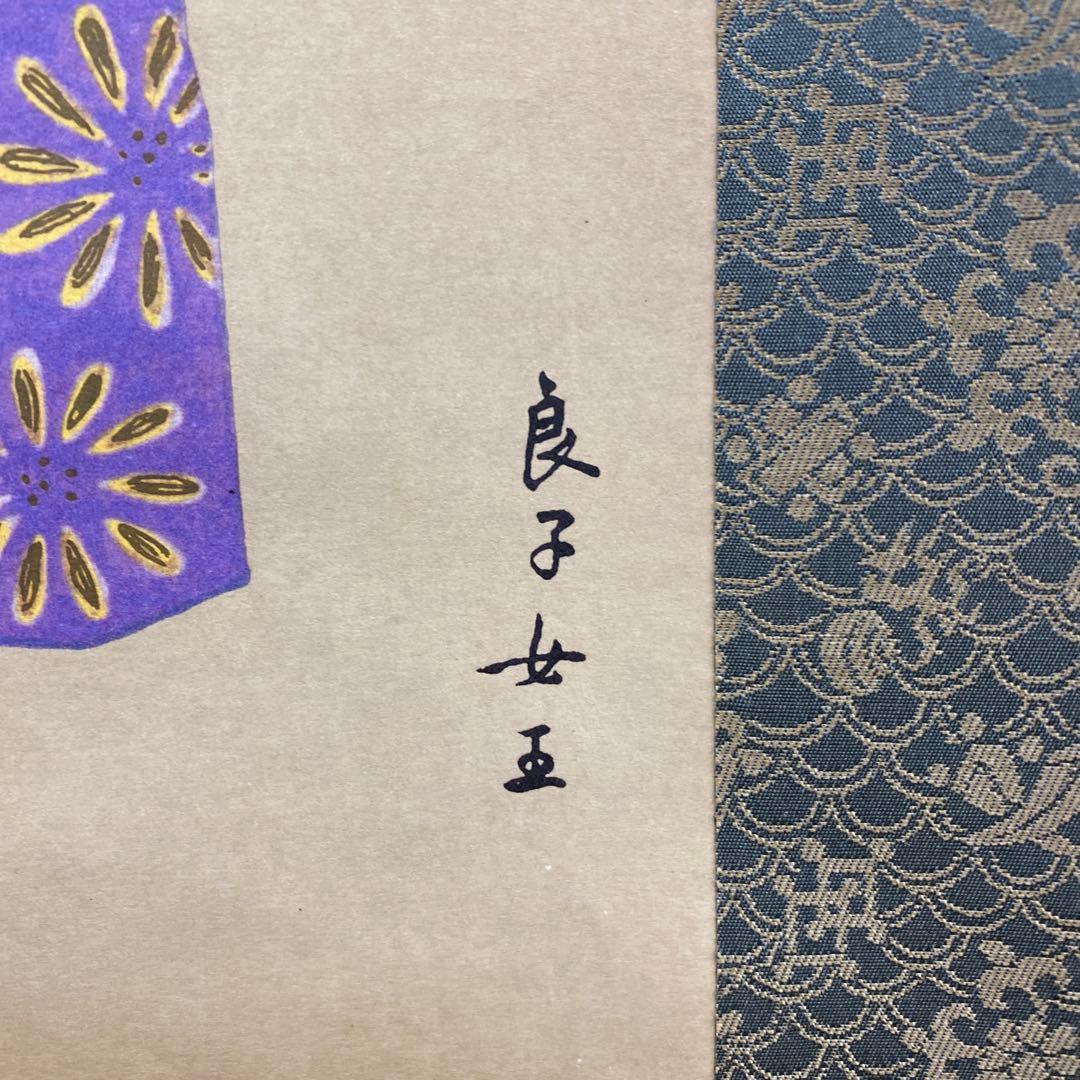 良子女王